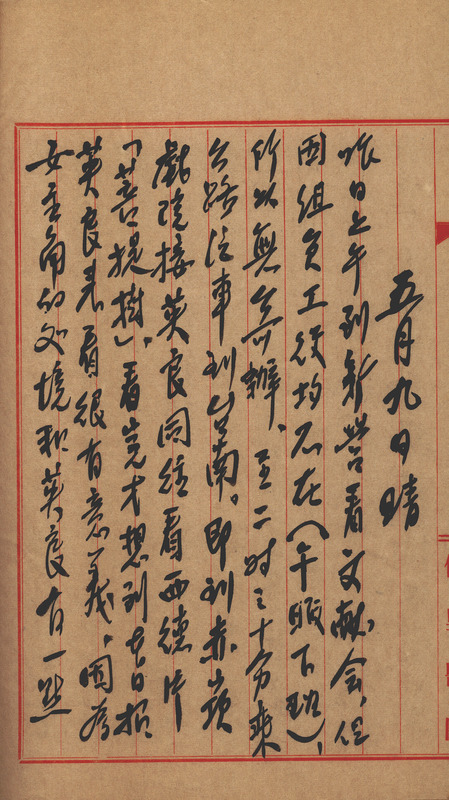 五月九日 晴
昨日上午到新營看文献会，但
因組員工役均不在（午暇下班），
所以無弁辦、至二时三十分乘
公路汽車到台南。即到赤嵌
戲院接英良同往看西德片
「菩提樹」，看完才想到古日招
英良来看很有意義，因为
女主角的处境和英良有一點